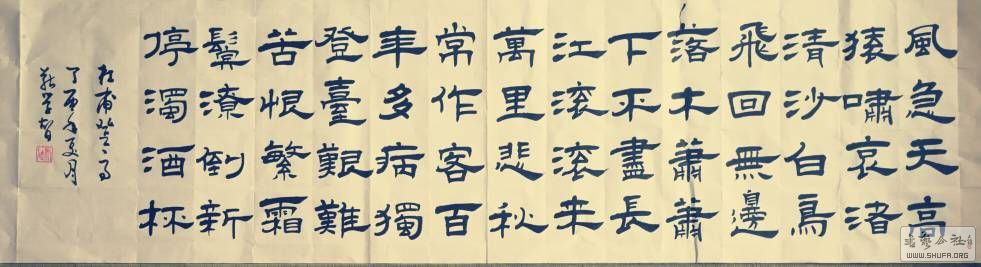 風急天高
猿嘯哀渚
清沙白鳥
飛回無邊
落木蕭蕭
下不盡長
江滾滾来
萬里悲秋
常作客百
年多病獨
登臺艱難
苦恨繁霜
鬢潦倒新
停濁酒杯
杜甫登高
丁酉年夏月
WWW.SHUFA.ORG